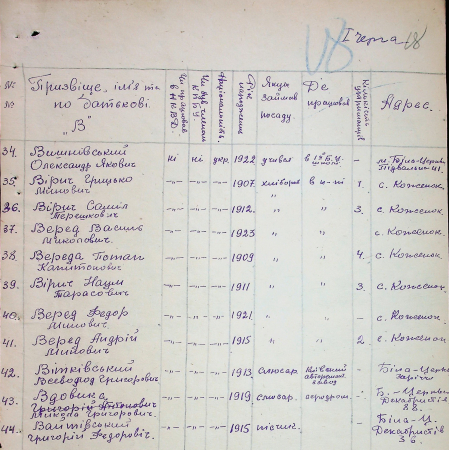 І черга 18
№ № Призвіще, ім'я та по батькові. "В" Чи працював в НКВД. Чи був членом КПБУ. Національність Рік народження Яку займав посаду. Де працював Кількість утриманців Адрес.
34. Вишнівський Олександр Якович ні ні укр. 1922 учився
35. Вірич Грицько Минович -"- -"- -"- 1907 хлібороб в к-ті 1. с. Коженок.
36. Вірич Саміл -"- -"- -"- 1912. " " 3. с. Коженок.
37. Веред Василь Микитович. -"- -"- -"- 1923 " " с. Коженок.
38. Вереда Потап Капитонович -"- -"- -"- 1909 " " 4. с. Коженок.
39. Вірич Наум Тарасович -"- -"- -"- 1911 " " 3. с. Коженок.
40. Веред Федор Минович. -"- -"- -"- 1921 " " - с. Коженок.
41. Веред Андрій Минович -"- -"- -"- 1915 " " 2 с. Коженок
42. Вітківський Всеволод Григорович. -"- -"- -"- 1913. слюсар. - Біла-Церк
43. Вдовика Микола Григорович. -"- -"- -"- 1919 слюсар. аеродром. - Б.-Церква Декабристів 88.
44. Войтівський Григорій Федорович. -"- -"- -"- 1915 - Біла-Ц. Декабристів 36.